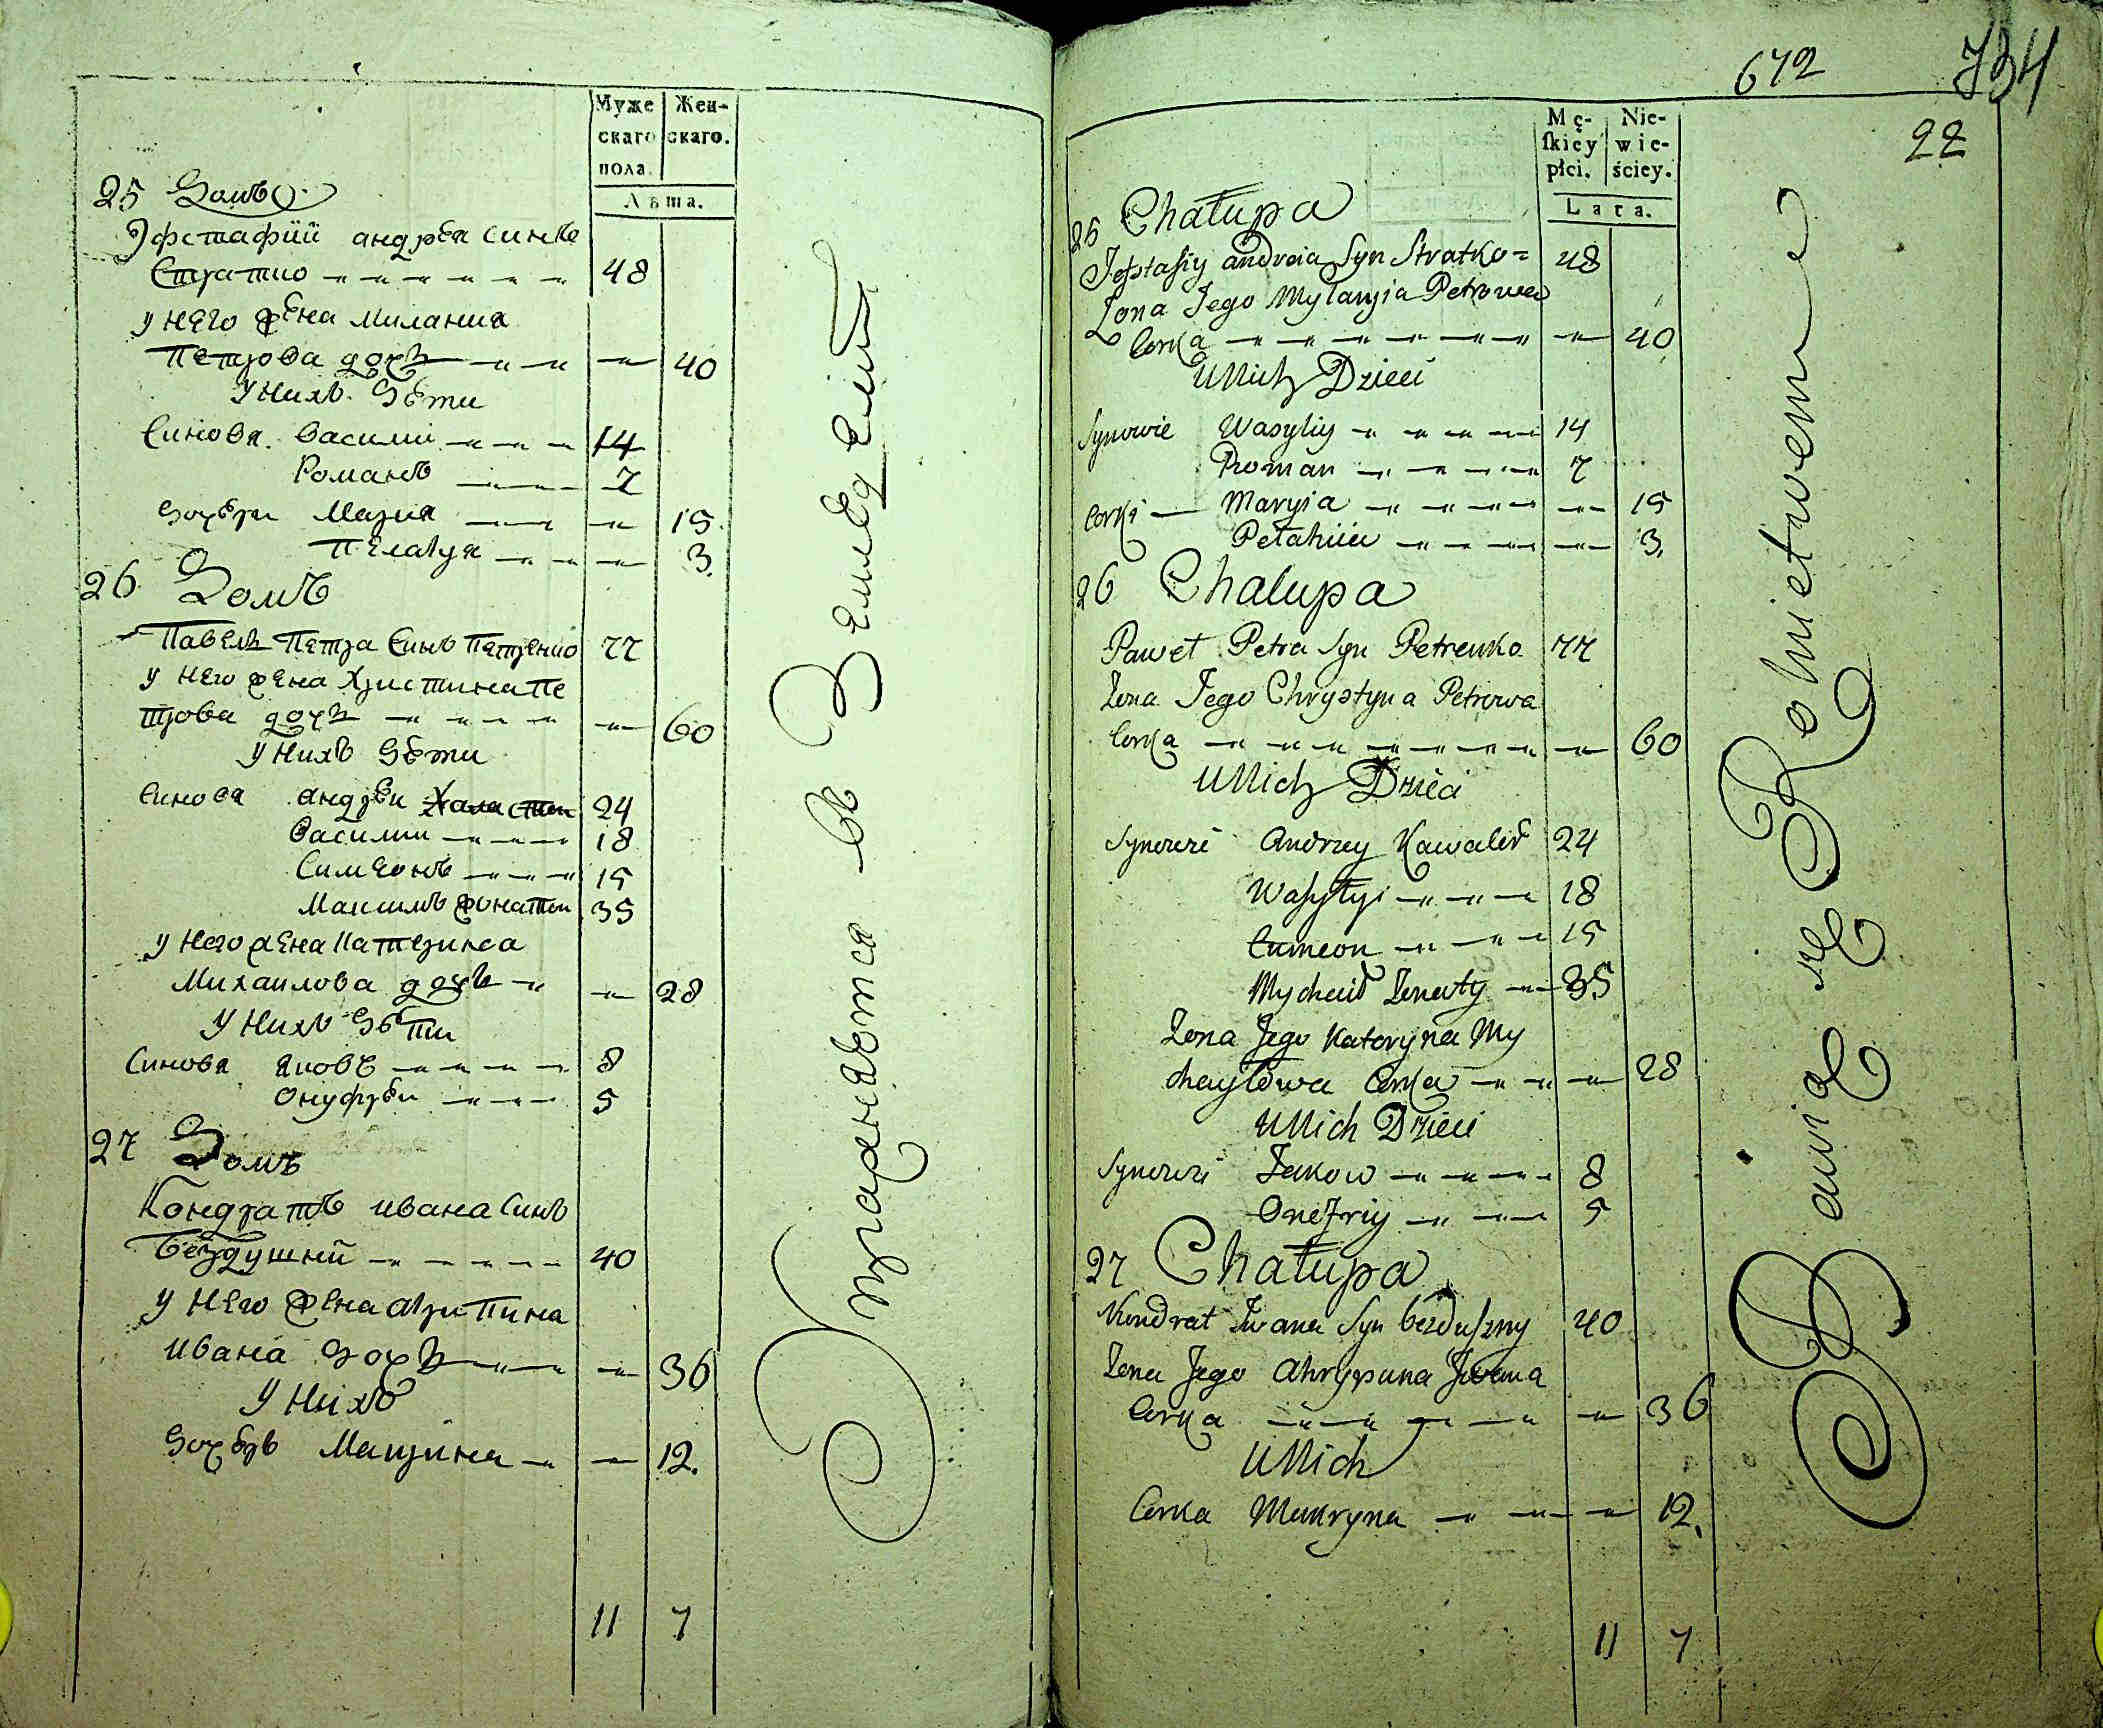 Муже
скаго
пола.
Жен-
скаго.
Лѣта.
25 Домъ
Эфстафий андрѣя синъ
Стратко 48
у него жена Милания
Петрова дочъ 40
У Нихъ Дѣти
Синовя Василии 14
Романъ 7
Дочѣри Мария 15
Пелагия 3.
26 Домъ
Павелъ Петра Синъ Петренко 77
у него жена Христина Пе
трова дочъ 60
у Нихъ Дѣти
Синовя андрѣи Холостои 24
Василии 18
Симеонъ 15
Максимъ жонатои 35
у Него жена Катерина
Михаилова дочъ 28
У Нихъ Дѣти
Синовя Яковъ 8
Онуфрѣи 5
27 Домъ
Кондратъ ивана Синъ
Бездушний 40
у Него жена агрипина
ивана Дочъ 36
У Нихъ
Дочѣръ Макрина 12.
11 7
Упражняются въ Земледелии
672
734
22
Mę-
ſkiey
płci.
Nie-
wie-
ściey.
Lata.
25 Chałupa
Jefstafiy andreia Syn Stratko= 48
Zona Jego Mylanyia Petrowa
Corka 40
U Nich Dzieci
Synowie Wasyliy 14
Roman 7
Corki Maryia 15
Pełahiia 3.
26 Chalupa
Paweł Petra Syn Petrenko 77
Zona Jego Chrystyna Petrowa
Corka 60
U Nich Dzieci
Synowie Andrzey Kawaler 24
Wasylyi 18
Cumeon 15
Mychaił Zonaty 35
Zona Jego Kateryna My
chayłowa Corka 28
U Nich Dzieci
Synowie Jakow 8
Onefriy 5
27 Chałupa
Kondrat Iwana Syn bezduszny 40
Zona Jego Ahrypuna Jwana
Corka 36
U Nich
Corka Makryna 12.
11 7
Bawią się Rolnictwem